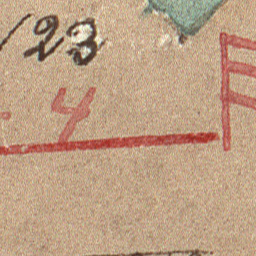 /23
- 4